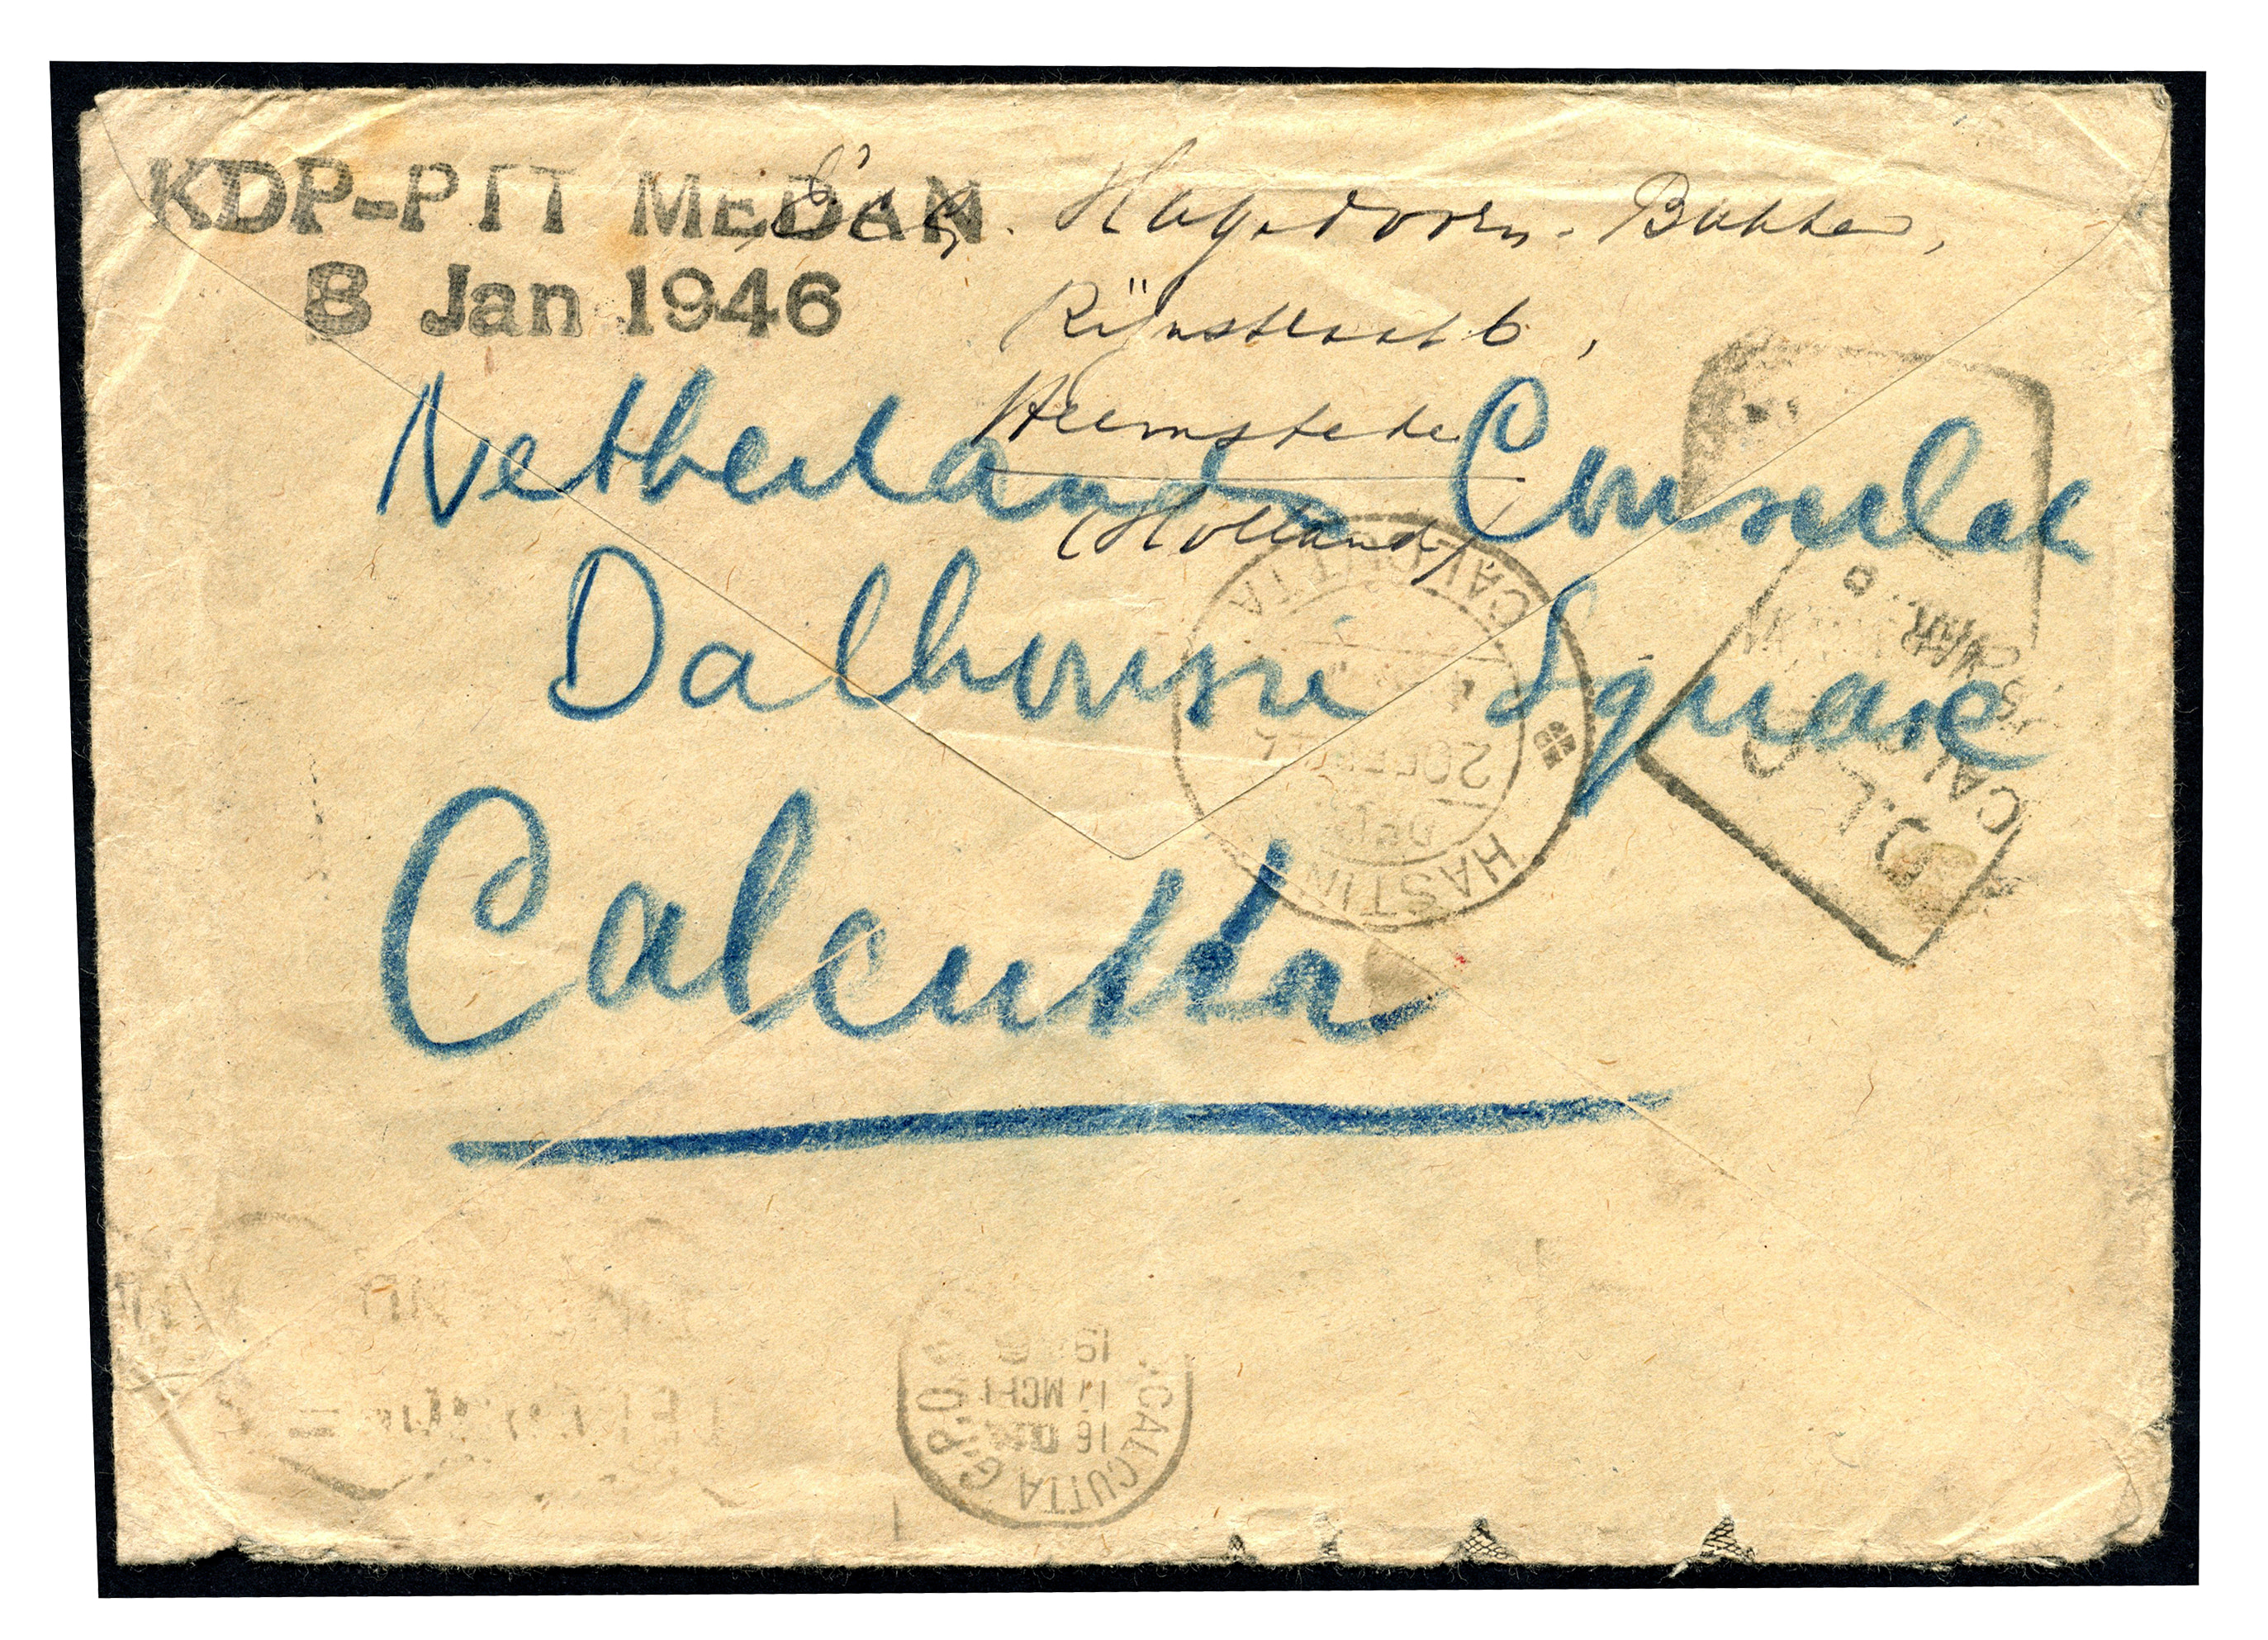 KDP-PTT MEDAN
8 Jan 1946
Hagedoorn-Bakker,
Rijnstraat 6,
Heemstede
(Holland)
Netherlands Consulate
Dalhousie Square
Calcutta
CALCUTTA
20 DE
HASTIN
D.L.O.
CAL
MAR
CALCUTTA G.P.O.
16 DEC
11 MCH
19